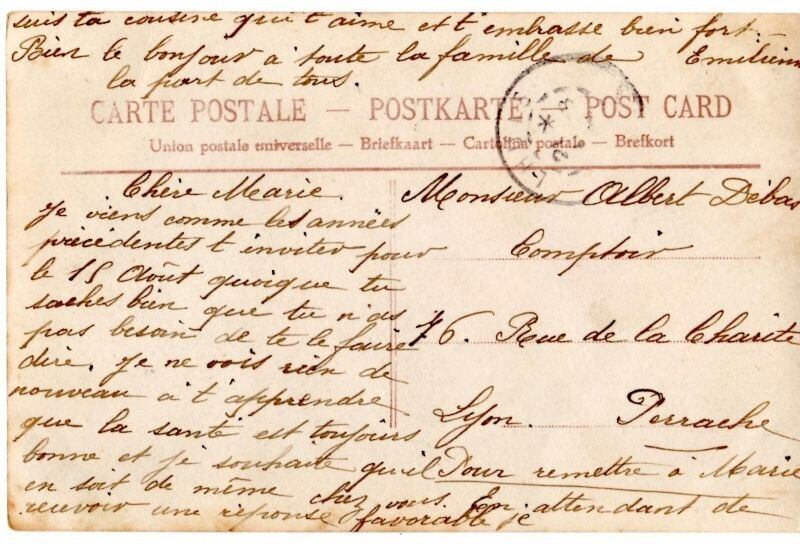 suis ta cousine qui t'aime et t'embrasse bien fort.
Bien le bonjour à toute la famille de Emilienne
la part de tous.
CARTE POSTALE — POSTKARTE — POST CARD
Union postale universelle — Briefkaart — Cartolina postale — Brefkort
Chère Marie.
Je viens comme les années
précédentes t inviter pour
le 15 Août quoique tu
saches bien que tu n'as
pas besoin de te le faire
dire. Je ne vois rien de
nouveau à t'apprendre
que la santé est toujours
bonne et je souhaite qu'il
en soit de même chez vous. En attendant de
recevoir une réponse favorable je
Monsieur Albert Débas
Comptoir
76. Rue de la Charite
Lyon. Perrache
Pour remettre à Marie